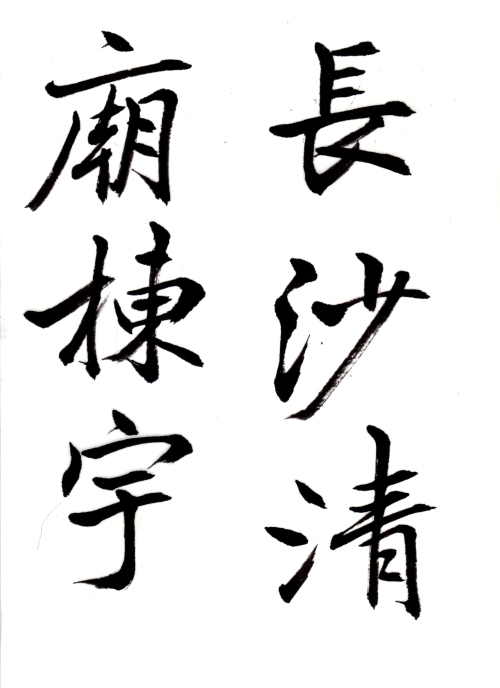 長沙清
廟棟宇